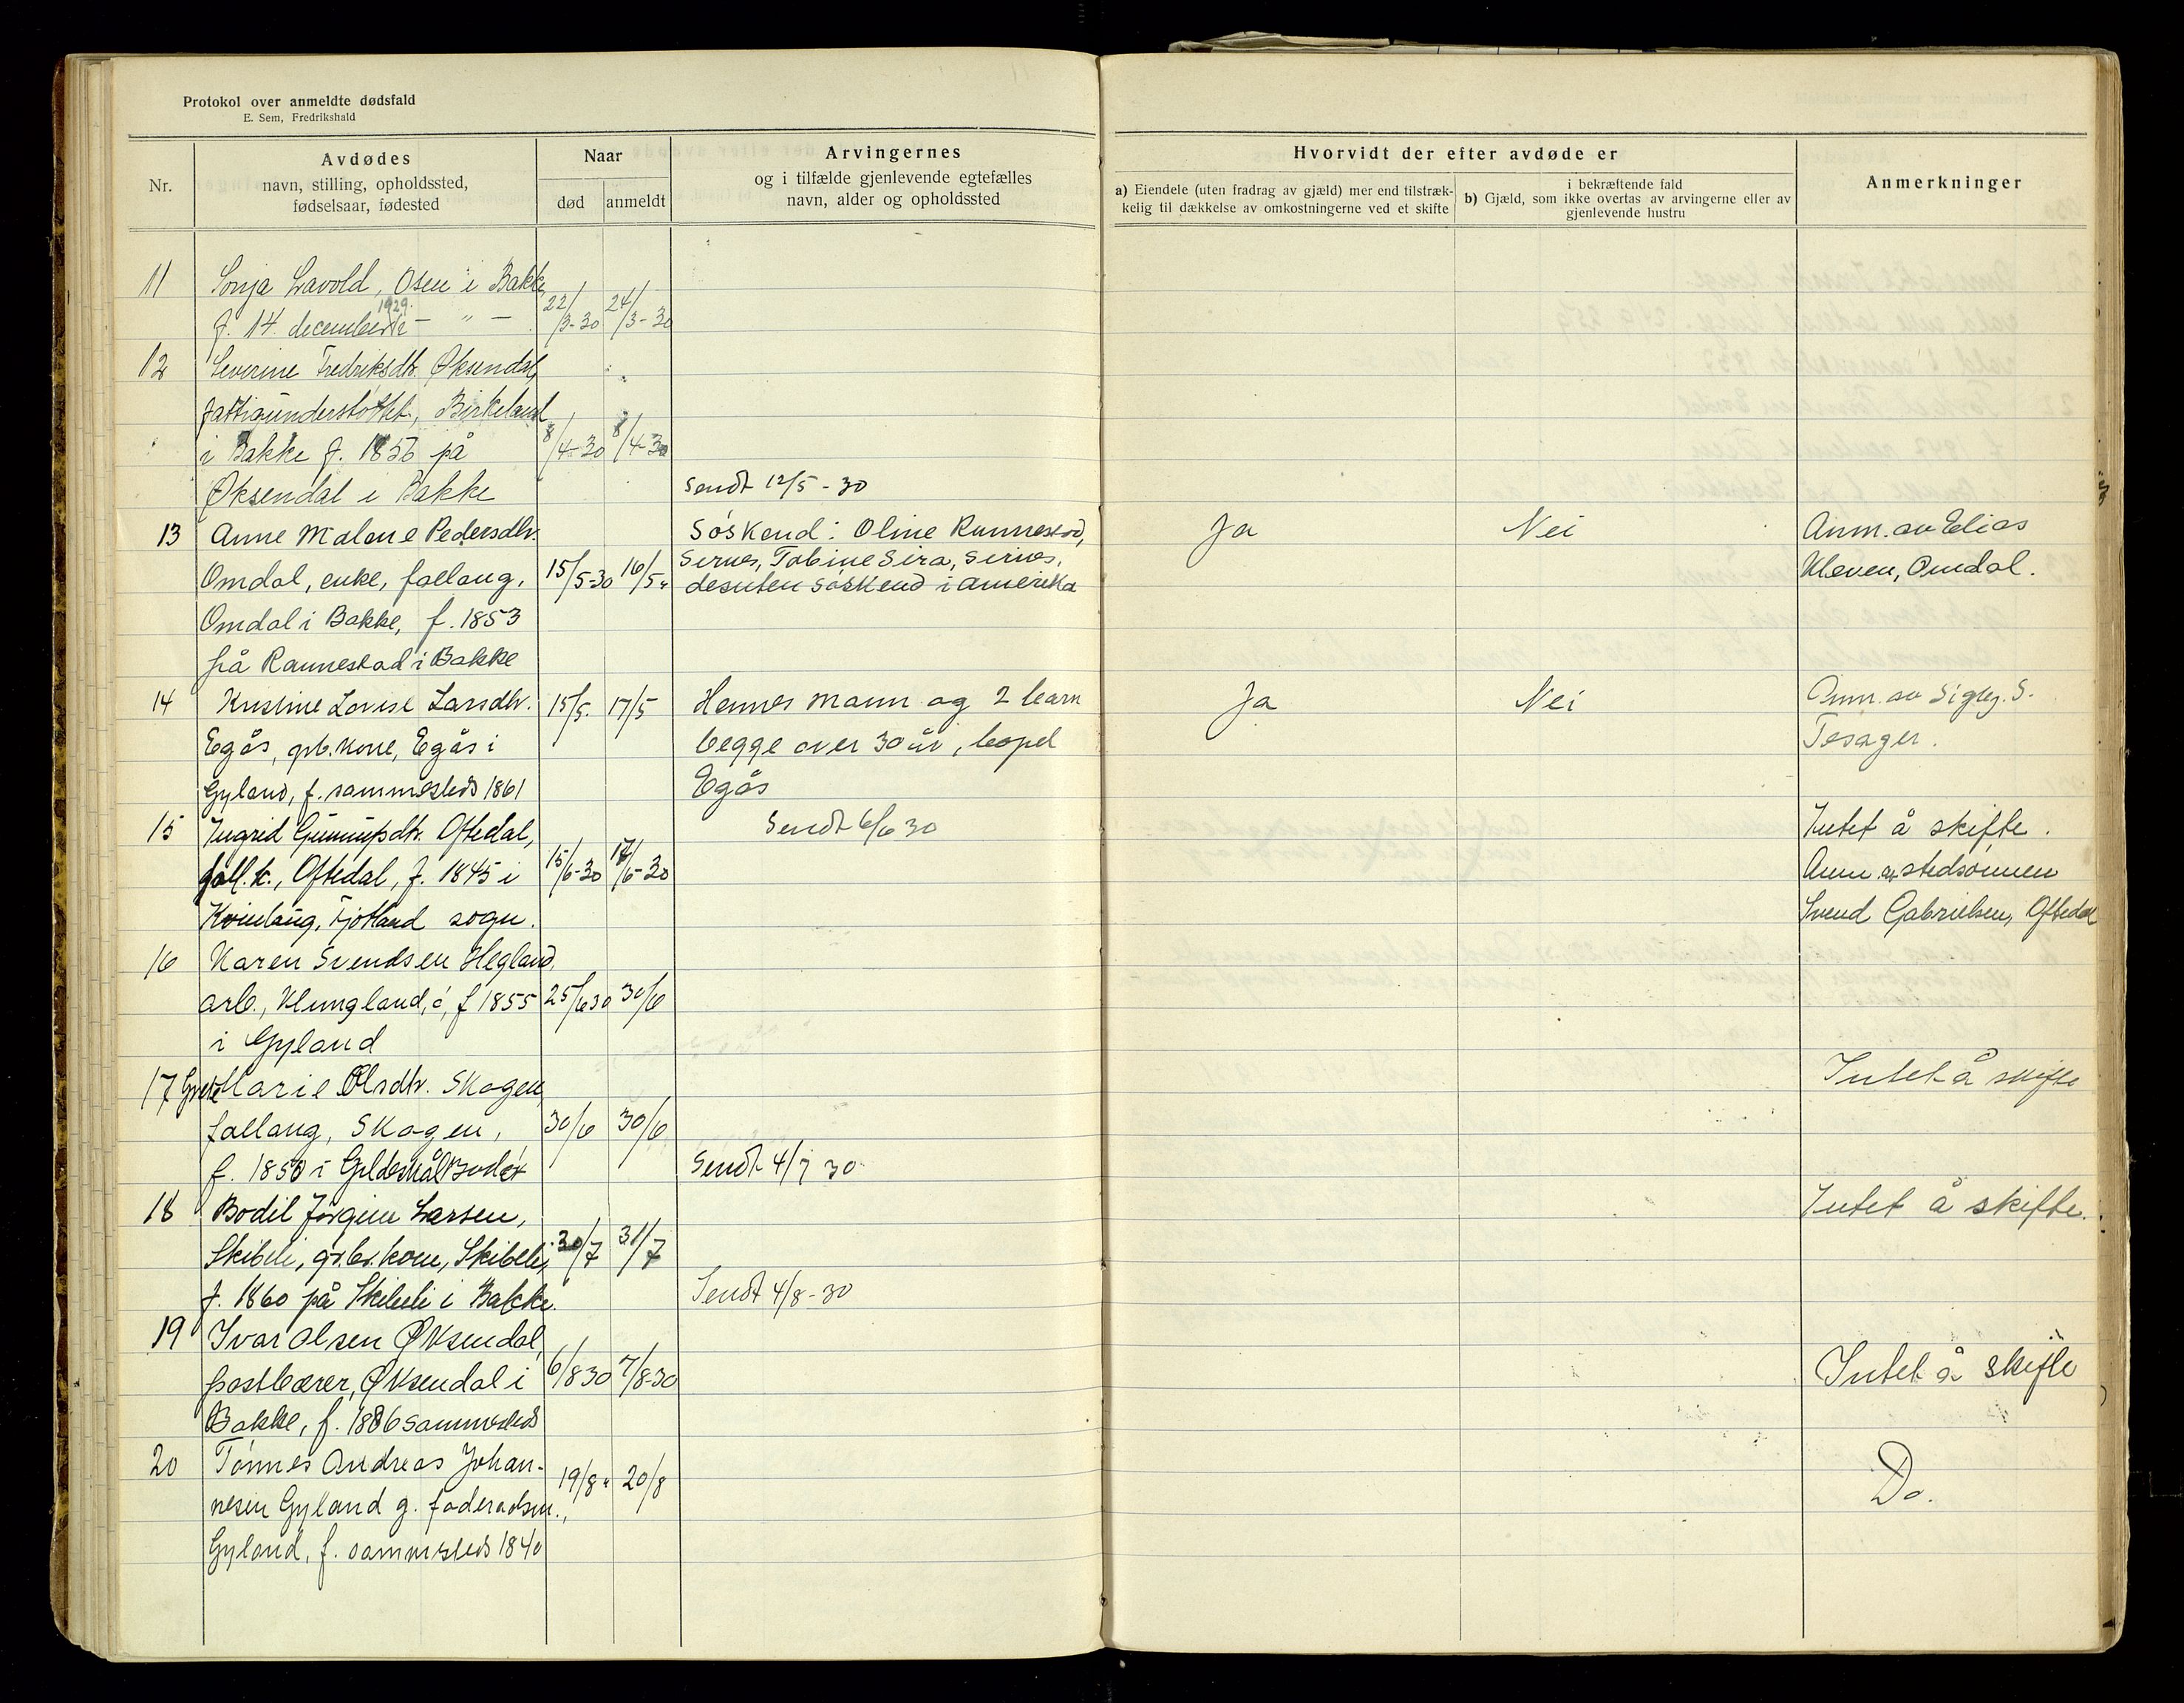 Protokol over anmeldte dødsfald
E. Sem, Fredrikshald
Nr.
Avdødes
navn, stilling, opholdssted,
fødselsaar, fødested
Naar
død
anmeldt
Arvingernes
og i tilfælde gjenlevende egtefælles
navn, alder og opholdssted
Hvorvidt der efter avdøde er
a) Eiendele (uten fradrag av gjæld) mer end tilstræk-
kelig til dækkelse av omkostningerne ved et skifte
i bekræftende fald
b) Gjæld, som ikke overtas av arvingerne eller av
gjenlevende hustru
Anmerkninger
11 Sonja Lavold, Osen i Bakke
1929.
f. 14. december - " - 22/3-30 24/3-30
12 Severine Fredriksdtr. Øksendal,
fattigunderstøttet, Birkeland
i Bakke f. 1856 på 8/4-30 8/4-30
Øksendal i Bakke Sendt 12/5-30
13 Anne Malene Pedersdtr. Søskend: Oline Rannestad, Ja Nei Anm. av Elias
Omdal, enke, fallang, 15/5-30 16/5" Sirnes, Tobine Sira, Sirnes, Kleven, Omdal.
desuten søskend i Amerika
Omdal i Bakke, f. 1853
på Rannestad i Bakke
14 Kristine Lovise Larsdtr. 15/5. 17/5 Hennes mann og 2 barn Ja Nei Anm. av Sigbj. S.
Egås, grb. kone, Egås i begge over 30 år, bopel Tosager.
Gyland, f. sammesteds 1861 Egås
15 Ingrid Gunnufsdtr. Oftedal, Sendt 6/6 30 Intet å skifte.
fall.k., Oftedal, f. 1845 i 15/6-30 17/6-30 Anm. av stedsønnen
Kvinlaug, Fjotland sogn. Svend Gabrielsen, Oftedal
16 Karen Svendsen Hegland,
arb., Klungland, f 1855 25/6 30 30/6
i Gyland
17 Marie Olsdtr. Skogen, Intet å skifte
fallang, Skogen, 30/6 30/6
f. 1850 i Gildeskål Bodø Sendt 4/7 30
18 Bodil Jørgine Larsen, Intet å skifte.
Skibeli, gr.br. kone, Skibeli, 30/7 31/7
f. 1860 på Skibeli i Bakke. Sendt 4/8-30
19 Ivar Olsen Øksendal,
postbærer, Øksendal i 6/8 30 7/8-30 Intet å skifte
Bakke, f. 1886 sammesteds
20 Tønnes Andreas Johan-
nesen Gyland g. føderadsm., 19/8" 20/8 Do.
Gyland, f. sammesteds 1840